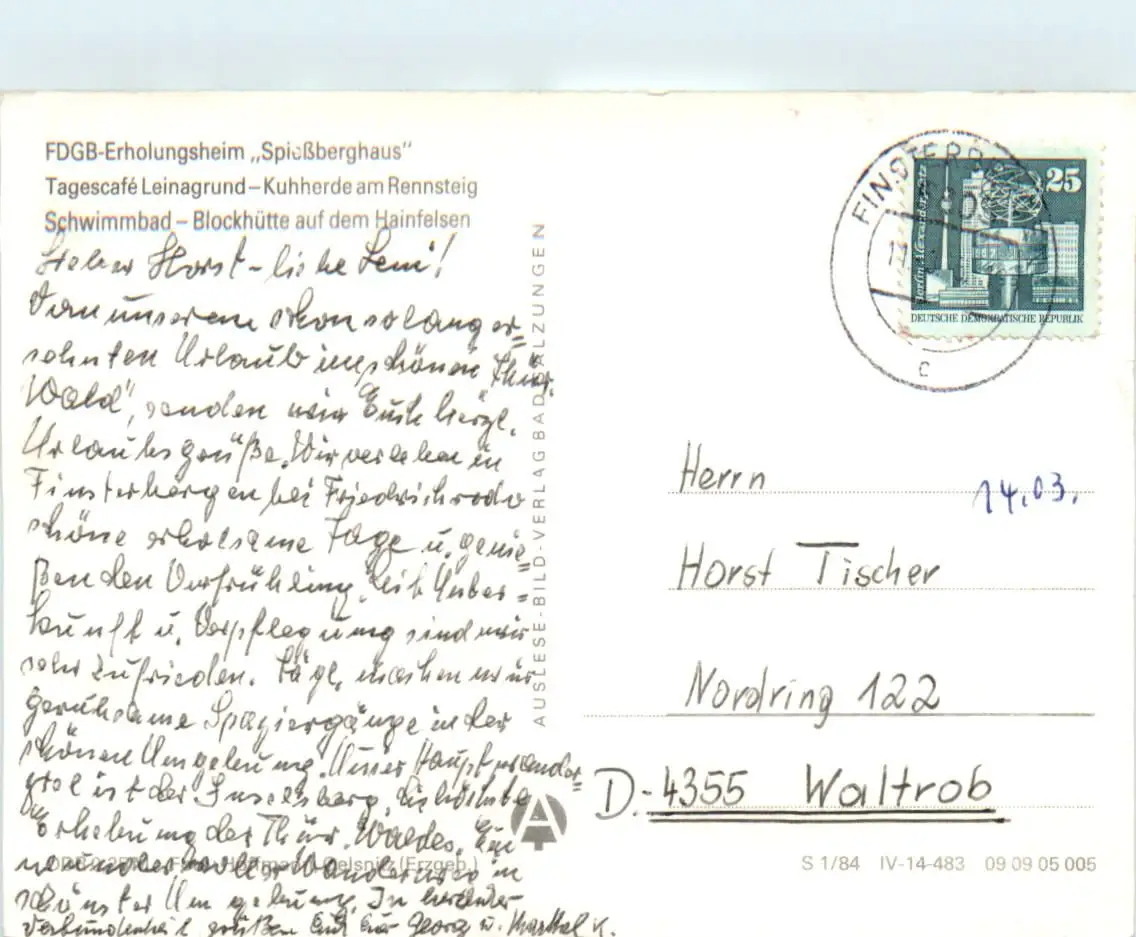 FDGB-Erholungsheim „Spießberghaus"
Tagescafé Leinagrund – Kuhherde am Rennsteig
Schwimmbad – Blockhütte auf dem Hainfelsen
Lieber Horst – liebe Leni!
Von unserem schon so lang er=
sehnten Urlaub im schönen Thür.
Wald, senden wir Euch herzl.
Urlaubsgrüße. Wir verleben in
Finsterbergen bei Friedrichroda
schöne erholsame Tage u. genie=
ßen den Vorfrühling. Mit Unter=
kunft u. Verpflegung sind wir
sehr zufrieden. Tägl. machen wir
geruhsame Spaziergänge in der
schönen Umgebung. Unser Hauptwander=
ziel ist der Inselsberg, die höchste
Erhebung des Thür. Waldes. Ein
wundervoller Wanderweg in
schönster Umgebung. In
Verbundenheit grüßen Euch Georg u. K.
AUSLESE-BILD-VERLAG BAD SALZUNGEN
FINSTERB
C
Berlin, Alexanderplatz
25
DEUTSCHE DEMOKRATISCHE REPUBLIK
Herrn
14.03.
Horst Tischer
Nordring 122
D.-4355 Waltrob
A
Oelsnitz (Erzgeb.)
S 1/84 IV-14-483 09 09 05 005